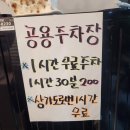 공용주차장
*1시간 무료주차
1시간 30분 200
*상가도민1시간
무료